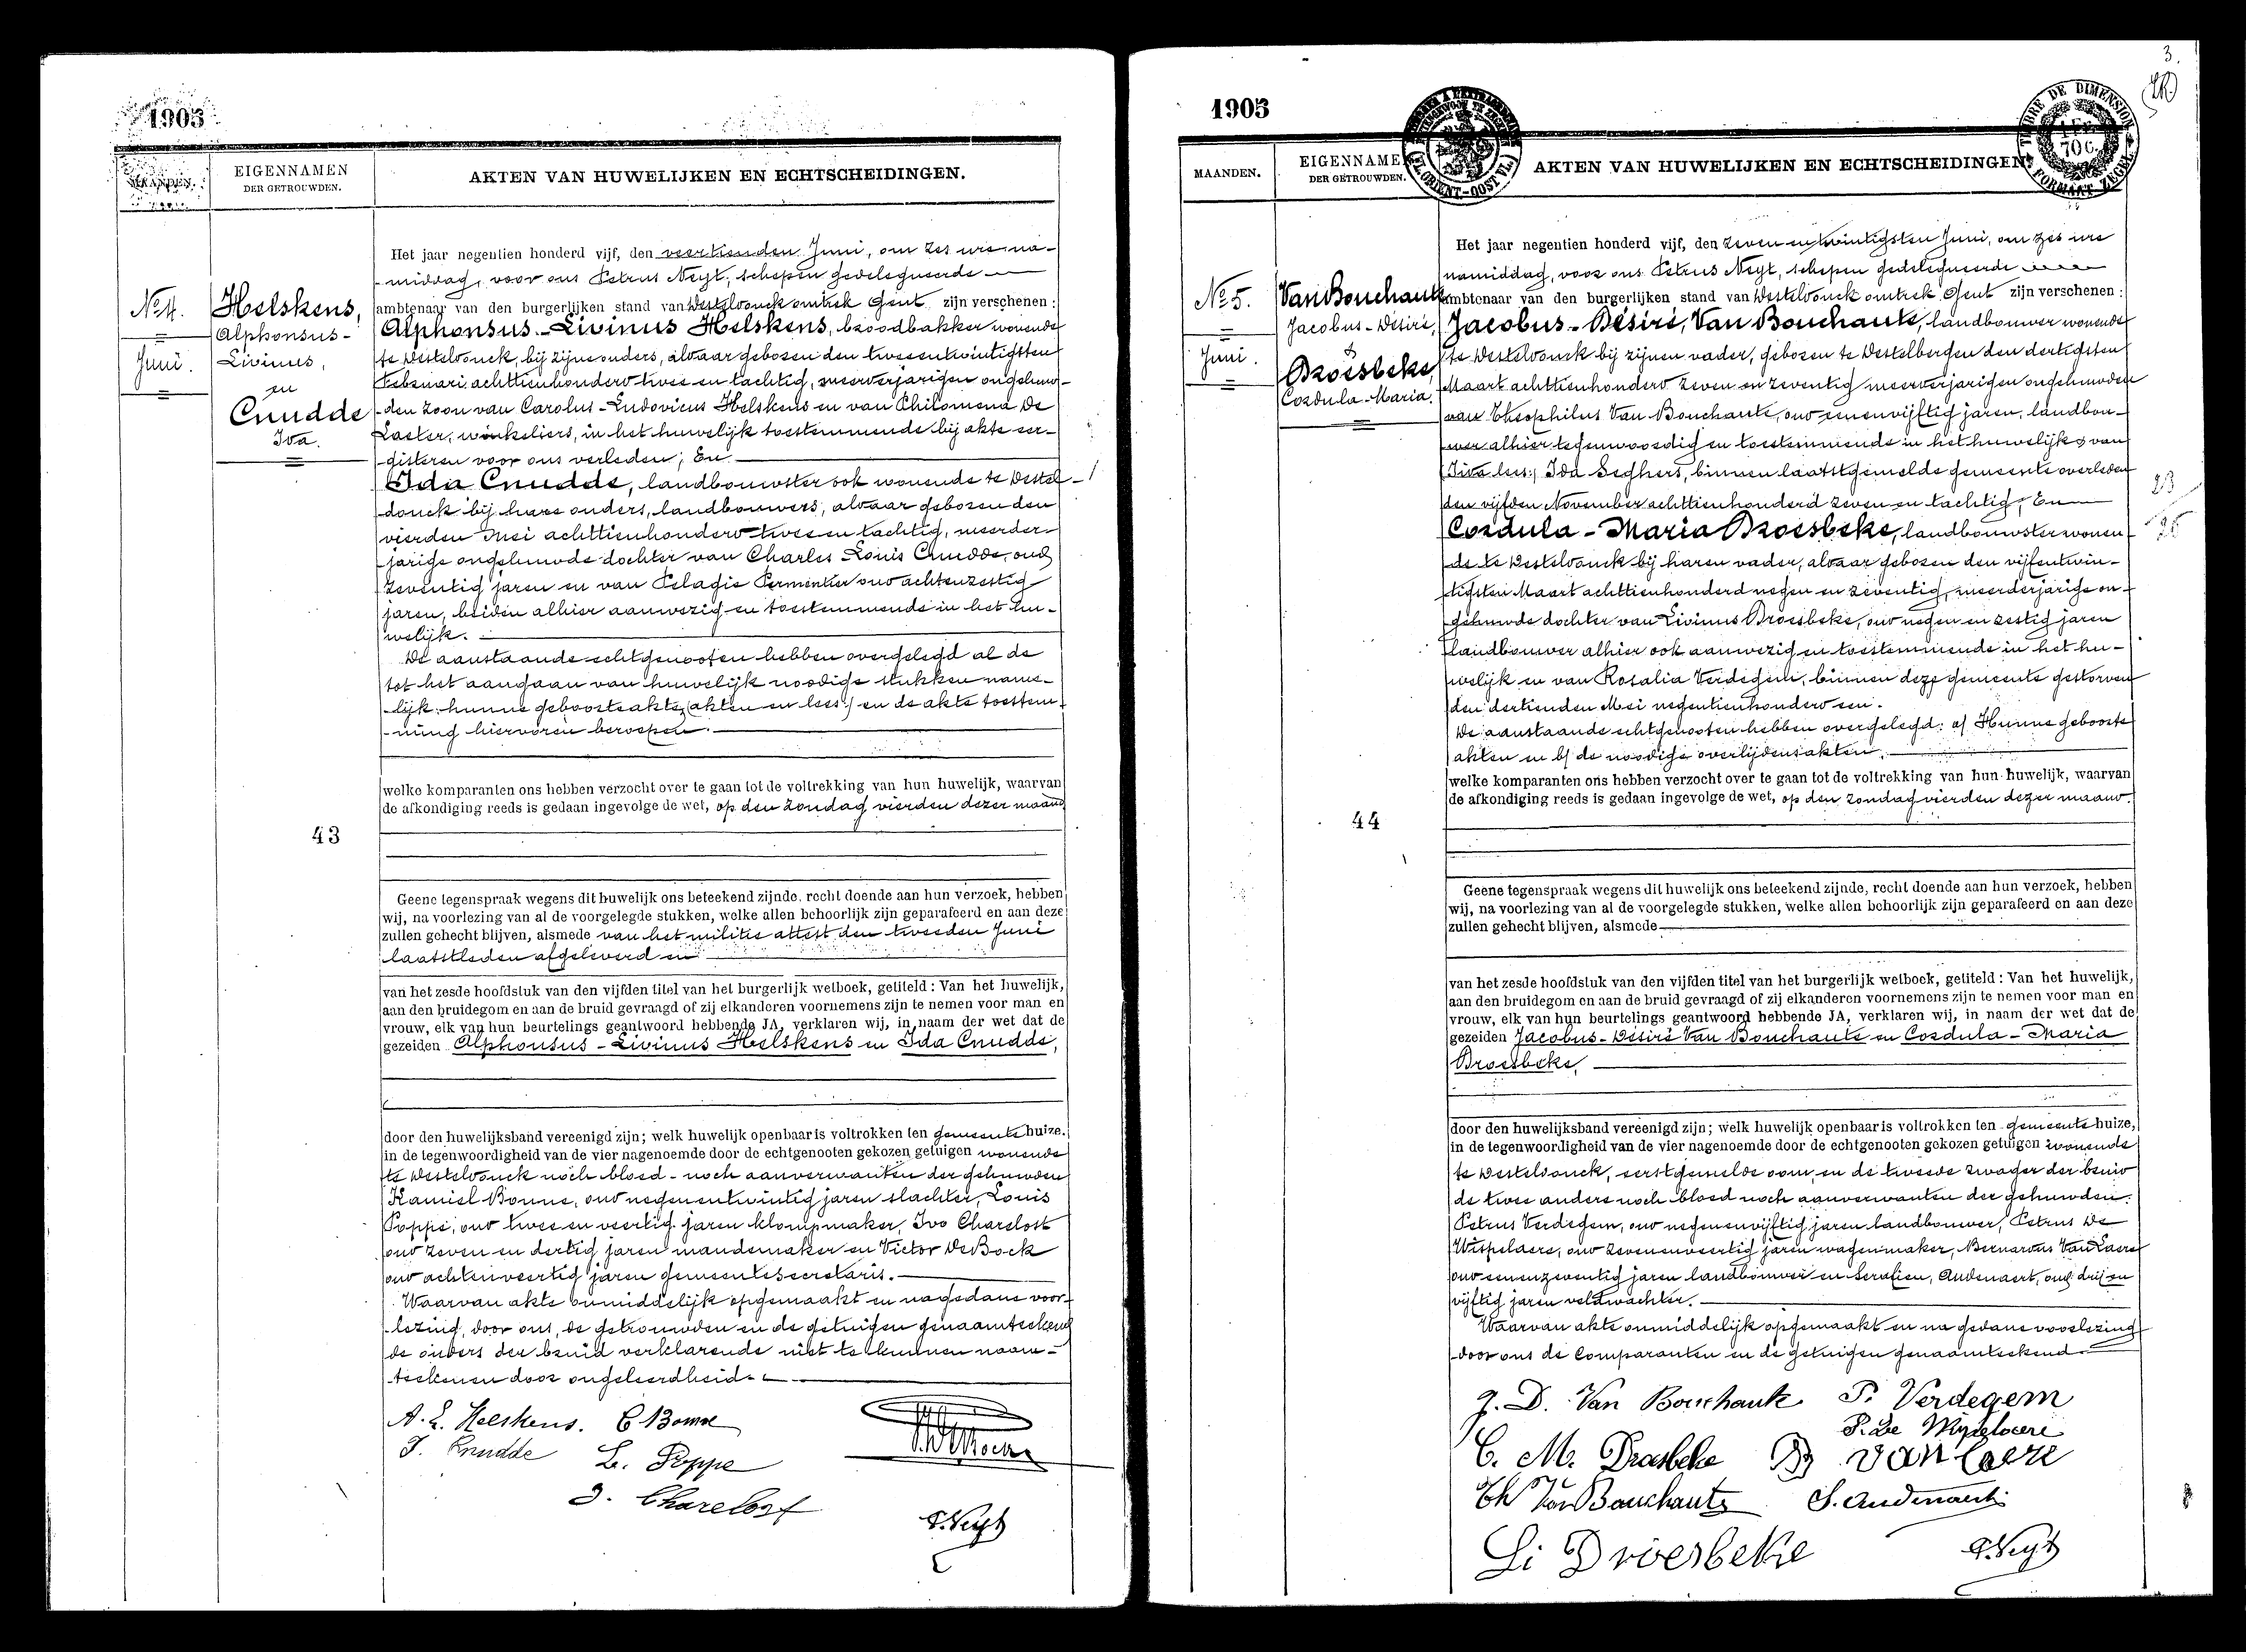 1905
MAANDEN.
EIGENNAMEN
DER GETROUWDEN.
AKTEN VAN HUWELIJKEN EN ECHTSCHEIDINGEN.
No 4.
Juni.
Helskens,
Alphonsus-
Livinus,
en
Cnudde
Ida.
43
Het jaar negentien honderd vijf, den veertienden Juni, om zes ure na-
-middag, voor ons Petrus Neyt, schepen gedelegueerde
ambtenaar van den burgerlijken stand van Desteldonck omtrek Gent zijn verschenen:
Alphonsus-Livinus Helskens, broodbakker wonende
te Desteldonck, bij zijne ouders, aldaar geboren den tweeentwintigsten
Februari achttienhonderd twee en tachtig, meerderjarigen ongehuw-
-den zoon van Carolus-Ludovicus Helskens en van Philomena De
Laeter, winkeliers, in het huwelijk toestemmende bij akte eer-
-gisteren voor ons verleden; En
Ida Cnudde, landbouwster ook wonende te Destel-
donck bij hare ouders, landbouwers, aldaar geboren den
vierden Mei achttienhonderd twee en tachtig, meerder-
jarige ongehuwde dochter van Charles Louis Cnudde, oud
zeventig jaren en van Pelagie Permentier oud achtenzestig
jaren, beiden alhier aanwezig en toestemmende in het hu-
welijk.
De aanstaande echtgenooten hebben overgelegd al de
tot het aangaan van huwelijk noodige stukken name-
-lijk: hunne geboorteakte (akten en lees) en de akte toestem-
-ming hiervoren beroepen.
welke komparanten ons hebben verzocht over te gaan tot de voltrekking van hun huwelijk, waarvan
de afkondiging reeds is gedaan ingevolge de wet, op den zondag vierden dezer maand
Geene tegenspraak wegens dit huwelijk ons beteekend zijnde, recht doende aan hun verzoek, hebben
wij, na voorlezing van al de voorgelegde stukken, welke allen behoorlijk zijn geparafeerd en aan deze
zullen gehecht blijven, alsmede van het militie attest den tweeden Juni
laatstleden afgeleverd en
van het zesde hoofdstuk van den vijfden titel van het burgerlijk wetboek, getiteld: Van het huwelijk,
aan den bruidegom en aan de bruid gevraagd of zij elkanderen voornemens zijn te nemen voor man en
vrouw, elk van hun beurtelings geantwoord hebbende JA, verklaren wij, in naam der wet dat de
gezeiden Alphonsus-Livinus Helskens en Ida Cnudde,
door den huwelijksband vereenigd zijn; welk huwelijk openbaar is voltrokken ten gemeentehuize,
in de tegenwoordigheid van de vier nagenoemde door de echtgenooten gekozen getuigen wonende
te Desteldonck noch bloed- noch aanverwanten der gehuwden
Kamiel Bonne, oud negenentwintig jaren slachter, Louis
Poppe, oud twee en veertig jaren klompmaker, Ivo Charelost
oud zeven en dertig jaren mandemaker en Victor DeBock
oud achtenveertig jaren gemeentesecretaris.
Waarvan akte onmiddelijk opgemaakt en nagedane voor-
-lezing, door ons, de getrouwden en de getuigen genaamteekend
de ouders der bruid verklarende niet te kunnen naam-
teekenen door ongeleerdheid.
A. L. Helskens. C Bonne
I. Cnudde L. Poppe
I. Charelost
P. Neyt
3.
1905
MAANDEN.
EIGENNAMEN
DER GETROUWDEN.
AKTEN VAN HUWELIJKEN EN ECHTSCHEIDINGEN.
TIMBRE DE DIMENSION
70 C.
FORMAAT ZEGEL
No 5.
Juni.
Van Bouchaute
Jacobus-Désiré,
&
Droesbeke,
Cordula-Maria.
44
Het jaar negentien honderd vijf, den zeven en twintigsten Juni, om zes ure
namiddag, voor ons Petrus Neyt, schepen gedelegueerde
ambtenaar van den burgerlijken stand van Desteldonck omtrek Gent zijn verschenen:
Jacobus-Désiré, Van Bouchaute, landbouwer wonende
te Desteldonck bij zijnen vader, geboren te Destelbergen den dertigsten
Maart achttienhonderd zeven en zeventig meerderjarigen ongehuwden
van Theophilus Van Bouchaute, oud eenenvijftig jaren, landbou-
-wer alhier tegenwoordig en toestemmende in het huwelijk & van
(Ida lees:) Ida Seghers, binnen laatstgemelde gemeente overleden
den vijfden November achttienhonderd zeven en tachtig; En
Cordula-Maria Droesbeke, landbouwster wonen-
de te Desteldonck bij haren vader, aldaar geboren den vijfentwin-
-tigsten Maart achttienhonderd negen en zeventig, meerderjarige on-
gehuwde dochter van Livinus Droesbeke, oud negen en zestig jaren
landbouwer alhier ook aanwezig en toestemmende in het hu-
welijk en van Rosalia Verdegem, binnen deze gemeente gestorven
den dertienden Mei negentienhonderd een.
De aanstaande echtgenooten hebben overgelegd: a/ Hunne geboorte
akten en b/ de noodige overlijdensakten.
welke komparanten ons hebben verzocht over te gaan tot de voltrekking van hun huwelijk, waarvan
de afkondiging reeds is gedaan ingevolge de wet, op den zondag vierden dezer maand.
Geene tegenspraak wegens dit huwelijk ons beteekend zijnde, recht doende aan hun verzoek, hebben
wij, na voorlezing van al de voorgelegde stukken, welke allen behoorlijk zijn geparafeerd en aan deze
zullen gehecht blijven, alsmede
van het zesde hoofdstuk van den vijfden titel van het burgerlijk wetboek, getiteld: Van het huwelijk,
aan den bruidegom en aan de bruid gevraagd of zij elkanderen voornemens zijn te nemen voor man en
vrouw, elk van hun beurtelings geantwoord hebbende JA, verklaren wij, in naam der wet dat de
gezeiden Jacobus-Désiré Van Bouchaute en Cordula-Maria
Droesbeke,
door den huwelijksband vereenigd zijn; welk huwelijk openbaar is voltrokken ten gemeentehuize,
in de tegenwoordigheid van de vier nagenoemde door de echtgenooten gekozen getuigen wonende
te Desteldonck, eerstgemelde oom, en de tweede zwager der bruid
de twee anders noch bloed noch aanverwanten der gehuwden.
Petrus Verdegem, oud negenenvijftig jaren landbouwer, Petrus De
Wispelaere, oud zevenenveertig jaren wagenmaker, Bernardus Van Laere
oud eenenzeventig jaren landbouwer en Serafien, Audenaert, oud drij en
vijftig jaren veldwachter.
Waarvan akte onmiddelijk opgemaakt en na gedane voorlezing
door ons de Comparanten en de getuigen genaamteekend.
J. D. Van Bouchaute P. Verdegem
P. De Wispelaere
C. M. Droesbeke B VanLaere
Th Van Bouchaute S. Audenaert
Li Droesbeke P. Neyt